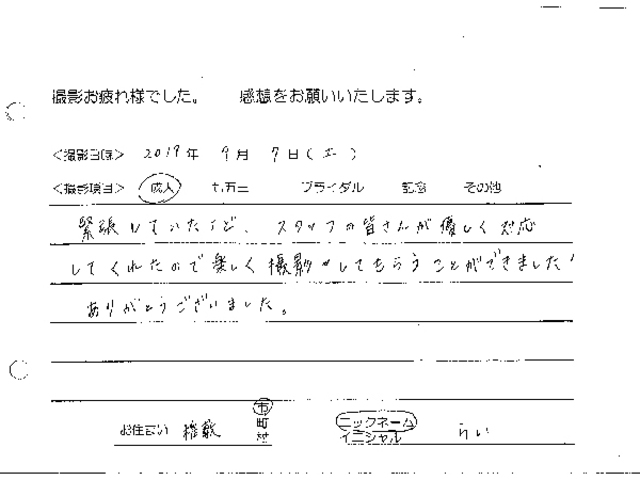 撮影お疲れ様でした。 感想をお願いいたします。
<撮影日> 2019年 9月 7日(土)
<撮影項目> 成人 七五三 ブライダル 記念 その他
緊張していたけど、スタッフの皆さんが優しく対応
してくれたので楽しく撮影してもらうことができました!
ありがとうございました。
お住まい 市 町 村 ニックネーム イニシャル らい